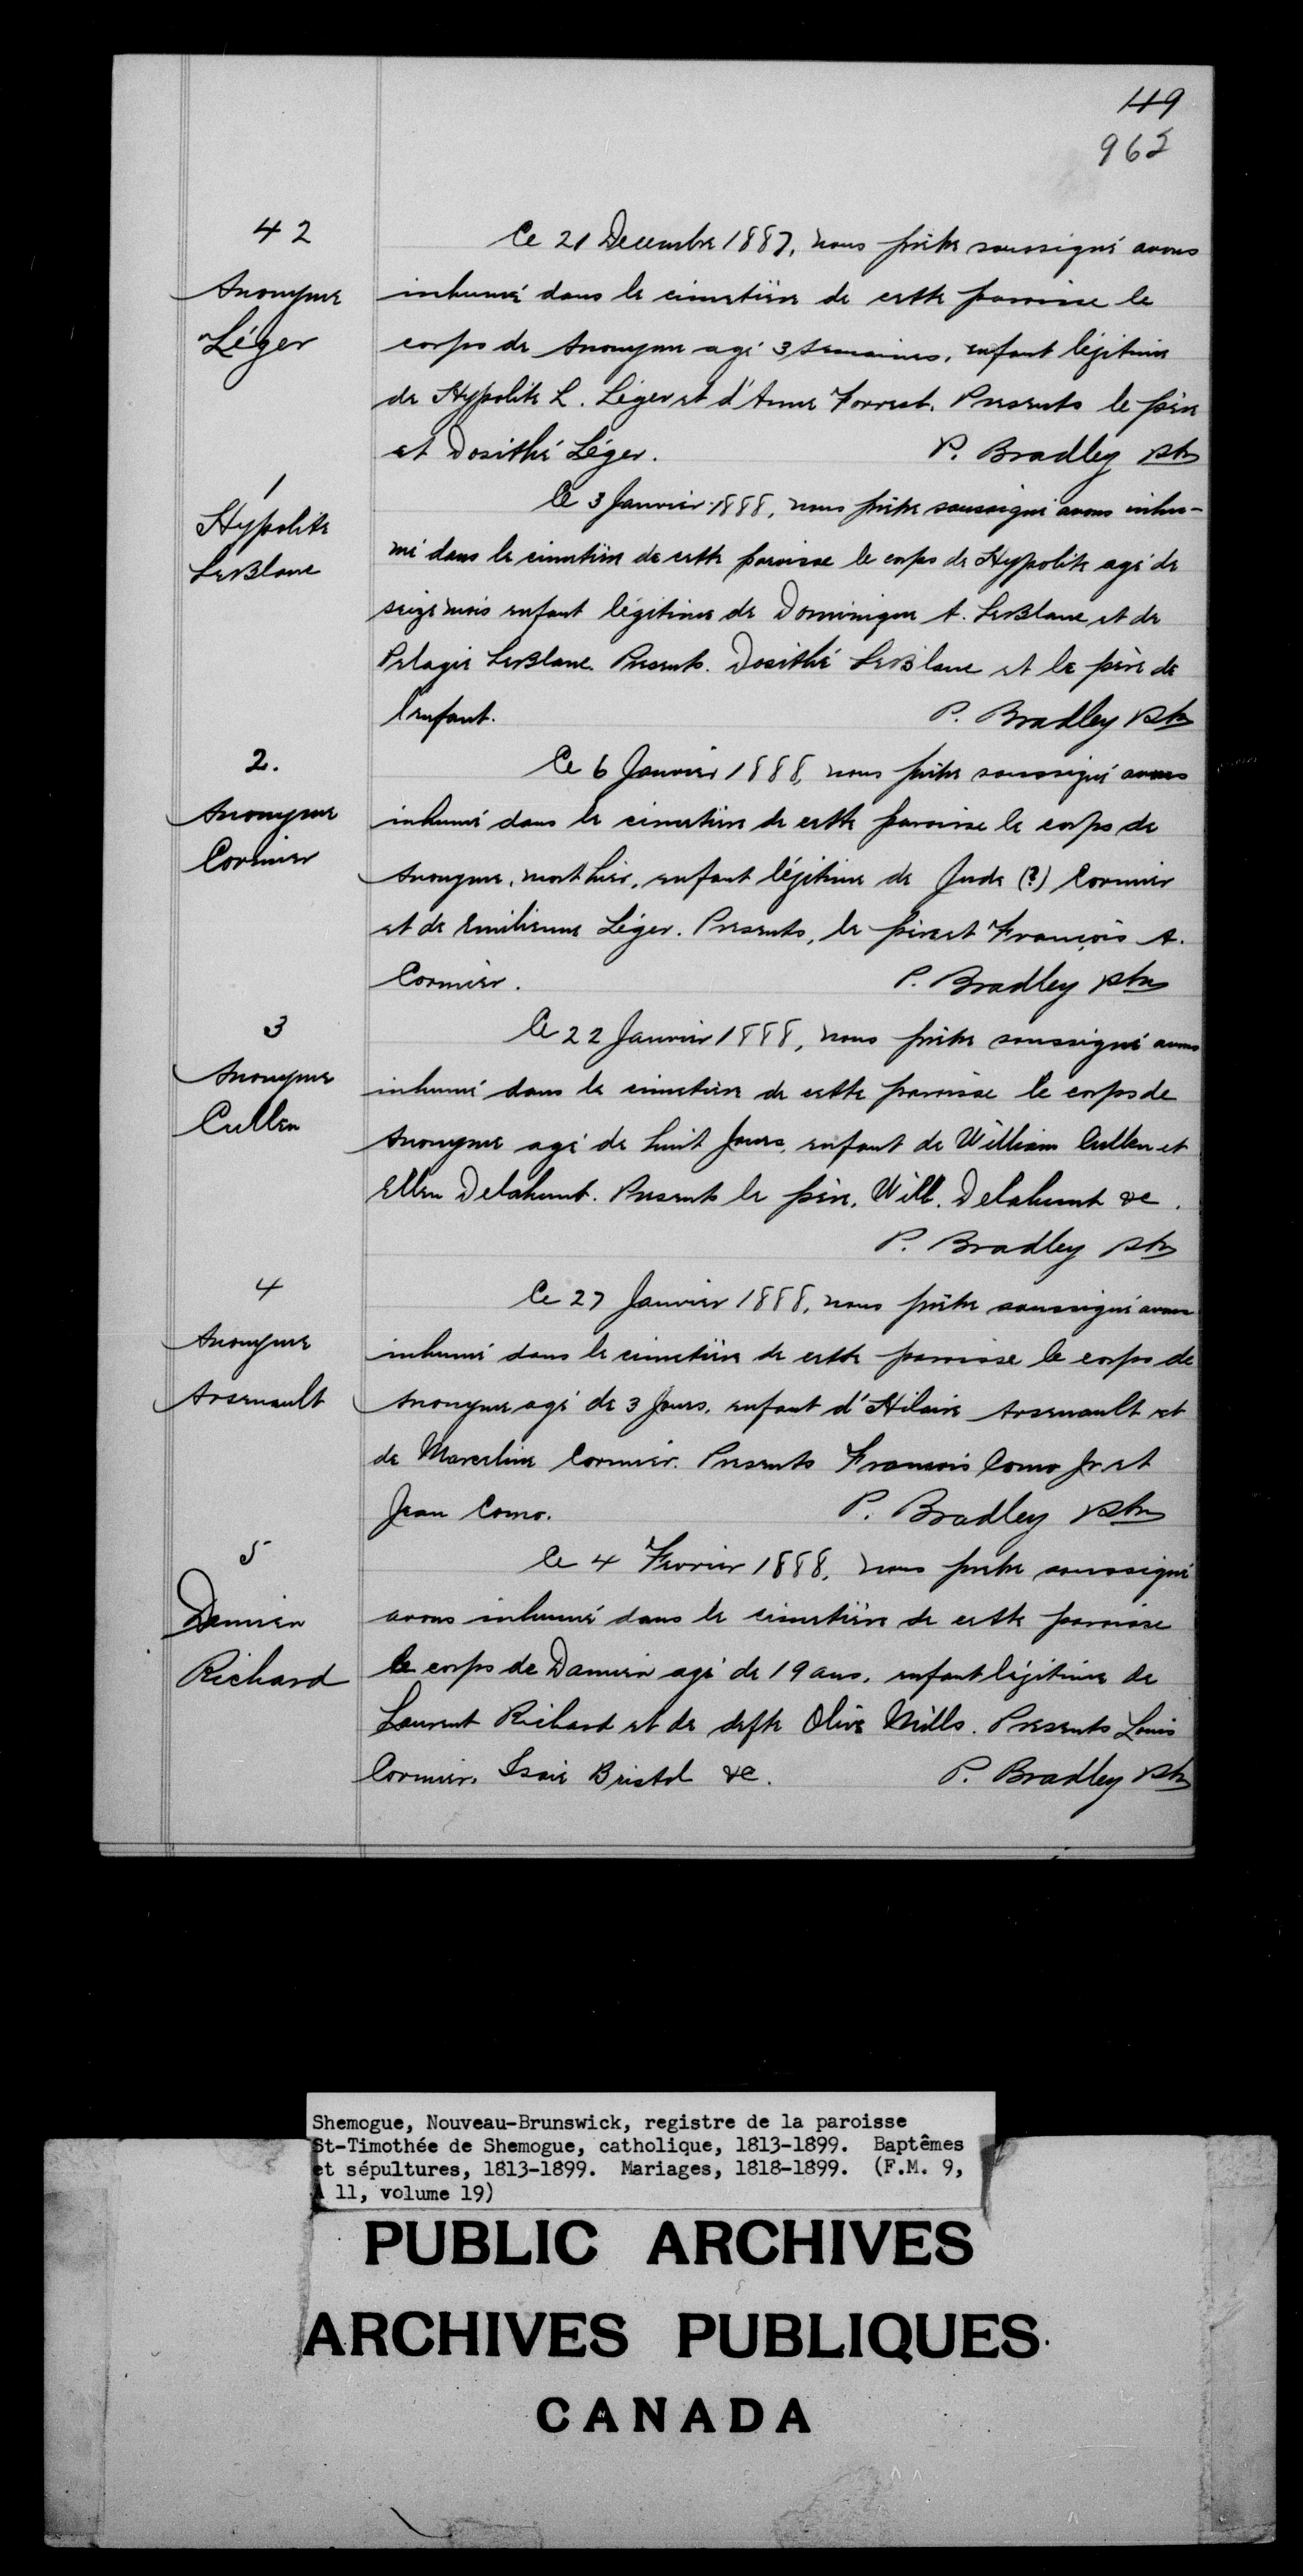 49
962
42
Anonyme
Léger
Ce 21 Decembre 1887, nous prêtre soussigné avons
inhumé dans le cimetière de cette paroisse le
corps de Anonyme agé 3 semaines, enfant légitime
de Hypolite L. Léger et d'Anne Forrest. Presents le père
et Dosithé Léger. P. Bradley ptre
1
Hypolite
LeBlanc
Ce 3 Janvier 1888, nous prêtre soussigné avons inhu-
mé dans le cimetière de cette paroisse le corps de Hypolite agé de
seize mois enfant légitime de Dominique A. LeBlanc et de
Pelagie LeBlanc. Presents. Dosithé LeBlanc et le père de
l'enfant. P. Bradley ptre
2.
Anonyme
Cormier
Ce 6 Janvier 1888, nous prêtre soussigné avons
inhumé dans le cimetière de cette paroisse le corps de
Anonyme, mort hier, enfant légitime de Jude (?) Cormier
et de Emilienne Léger. Presents, le père et François A.
Cormier. P. Bradley ptre
3
Anonyme
Cullen
Ce 22 Janvier 1888, nous prêtre soussigné avons
inhumé dans le cimetière de cette paroisse le corps de
Anonyme agé de huit jours, enfant de William Cullen et
Ellen Delahunt. Presents le père, Will. Delahunt &c.
P. Bradley ptre
4
Anonyme
Arsenault
Ce 27 Janvier 1888, nous prêtre soussigné avons
inhumé dans le cimetière de cette paroisse le corps de
Anonyme agé de 3 jours, enfant d'Hilaire Arsenault et
de Marceline Cormier. Presents François Como Jr et
Jean Como. P. Bradley ptre
5
Damien
Richard
Ce 4 Fevrier 1888, nous prêtre soussigné
avons inhumé dans le cimetière de cette paroisse
le corps de Damien agé de 19 ans, enfant légitime de
Laurent Richard et de defte Olive Mills. Presents Louis
Cormier, Isaie Bristol &c. P. Bradley ptre
Shemogue, Nouveau-Brunswick, registre de la paroisse
St-Timothée de Shemogue, catholique, 1813-1899. Baptêmes
et sépultures, 1813-1899. Mariages, 1818-1899. (F.M. 9,
A 11, volume 19)
PUBLIC ARCHIVES
ARCHIVES PUBLIQUES
CANADA